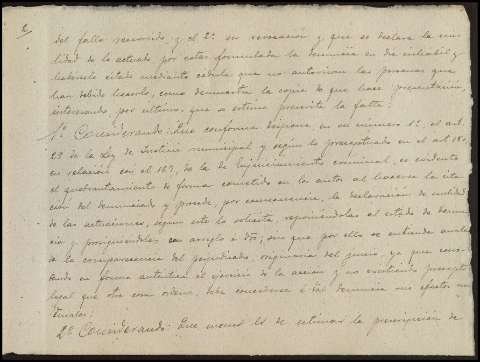 2
del fallo recurrido, y el 2º su revocación y que se declare la nu-
lidad de lo actuado por estar formulada la denuncia en dia inhabil y
haberselo citado mediante cédula que no autorizan las personas que
han debido hacerlo, como demuestra la copia de que hace presentación,
interesando por ultimo, que se estime prescrita la falta:
1º Considerando: Que conforme dispone en su numero 1º el art.
23 de la Ley de Justicia municipal y segun lo preceptuado en el art 180,
en relacion con el 167, de la de Enjuiciamiento criminal, es evidente
el quebrantamiento de forma cometido en los autos al hacerse la cita-
ción del denunciado y procede, por consecuencia, la declaración de nulidad
de las actuaciones, segun este lo solicita, reponiéndolas al estado de denun-
cia y prosiguiendolas con arreglo a dro; sin que por ello se entienda anulada
la comparecencia del perjudicado, originaria del juicio, ya que cons-
tando en forma autentica el ejercicio de la accion y no existiendo precepto
legal que otra cosa ordene, debe concederse á tal denuncia sus efectos na-
turales:
2º Considerando: Que menos es de estimar la prescripción de